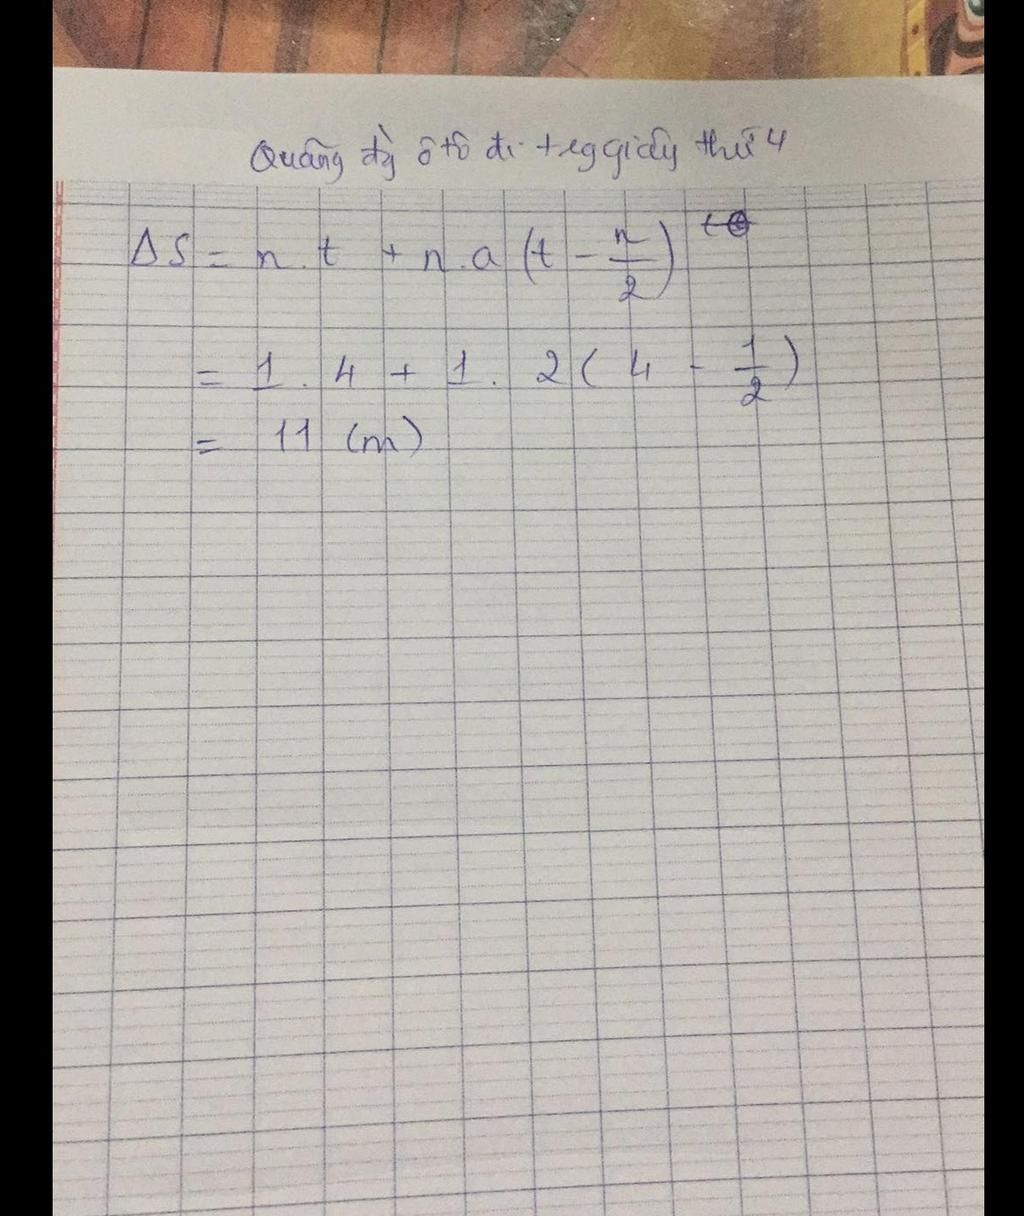 Quãng đg ô tô đi trg giây thứ 4
ΔS = n . t + n . a (t - n/2)
= 1 . 4 + 1 . 2 ( 4 - 1/2 )
= 11 (m)